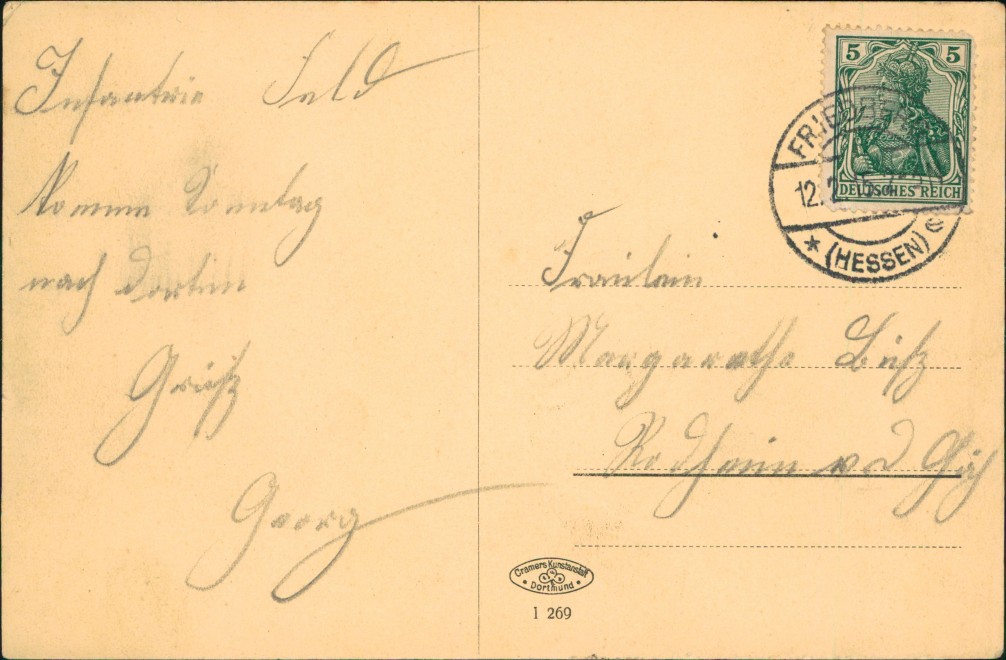 Infanterie Feld
Komme Sonntag
nach dorten
Gruß
Georg
5 5
DEUTSCHES REICH
FRIEDB
12.2
(HESSEN) e
Fräulein
Margarethe Buß
Rodheim v d Höh
Cramers Kunstanstalt
Dortmund
1 269